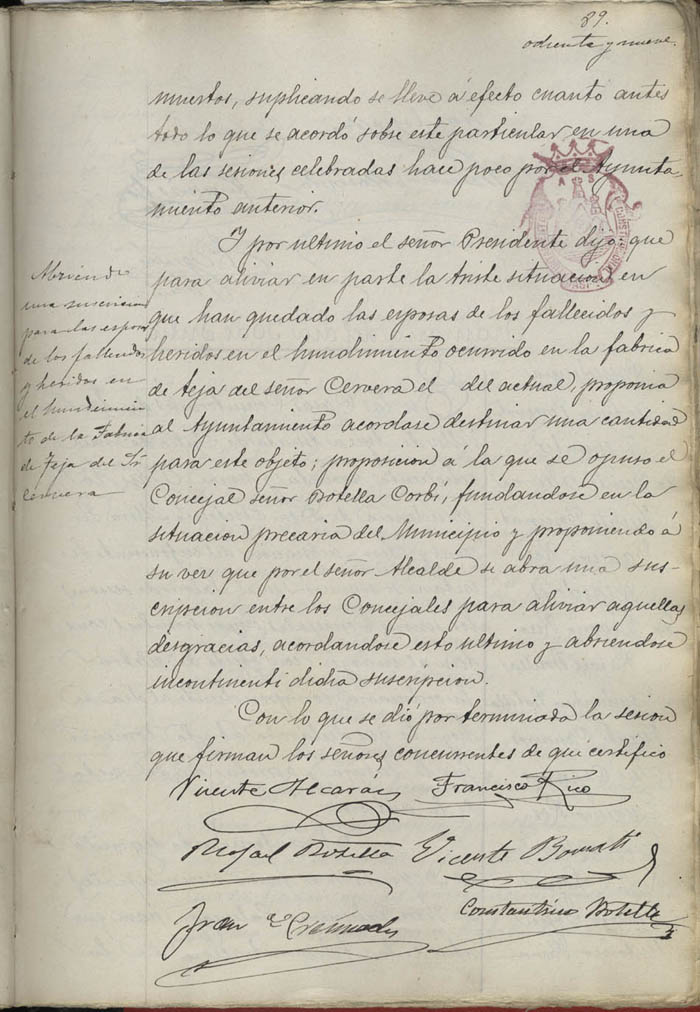 89.
ochenta y nueve.
muertos, suplicando se lleve á efecto cuanto antes
todo lo que se acordó sobre este particular en una
de las sesiones celebradas hace poco por el Ayunta-
miento anterior.
Y por ultimo el señor Presidente dijo: que
para aliviar en parte la triste situacion en
que han quedado las esposas de los fallecidos y
heridos en el hundimiento ocurrido en la fabrica
de teja del señor Cervera el del actual, proponia
al Ayuntamiento acordase destinar una cantidad
para este objeto; proposicion á la que se opuso el
Concejal señor Botella Corbí, fundandose en la
situacion precaria del Municipio y proponiendo á
su vez que por el señor Alcalde se abra una sus-
cripcion entre los Concejales para aliviar aquellas
desgracias, acordandose esto ultimo y abriendose
incontinenti dicha suscripcion.
Con lo que se dió por terminada la sesion
que firman los señores concurrentes de que certifico
Abriendo
una suscricion
para las esposas
de los fallecidos
y heridos en
el hundimien
to de la Fabrica
de Teja del Sr.
Cervera
Vicente Alcaráz Francisco Rico
Rafael Botella Vicente
Juan Cremades
Constantino Botella